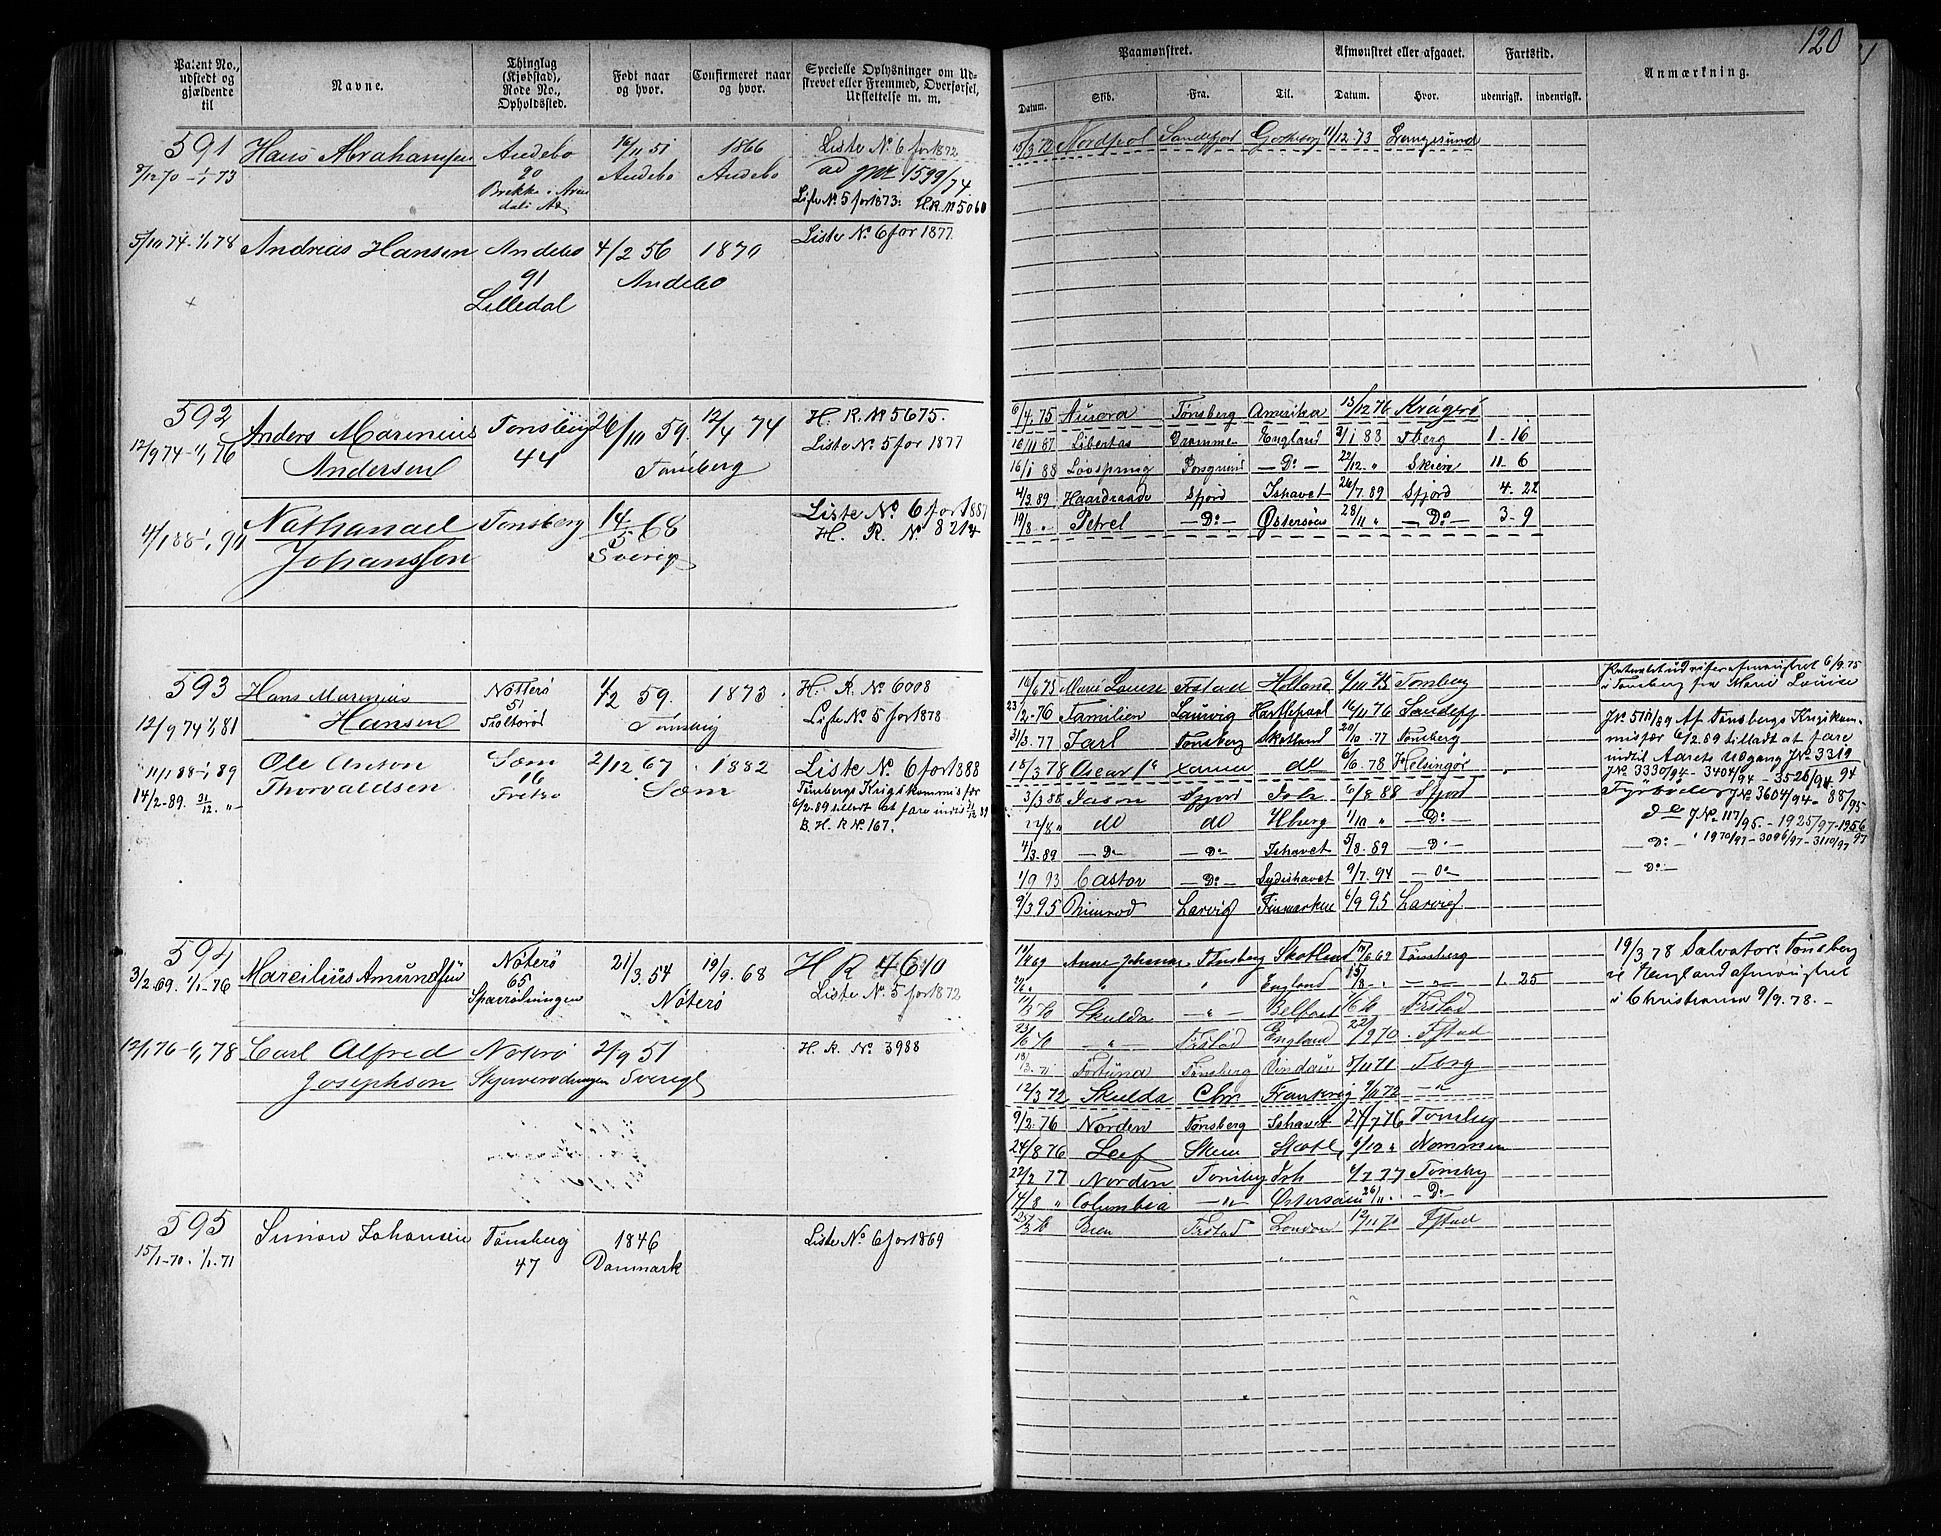 120
Patent No., udstedt og gjældende til
Navne.
Thinglag (Kjøbstad), Rode No., Opholdssted.
Født naar og hvor.
Confirmeret naar og hvor.
Specielle Oplysninger om Udskrevet eller Fremmed, Overførsel, Udslettelse m. m.
Paamønstret.
Afmønstret eller afgaaet.
Fartstid.
Anmærkning.
Datum. Skib. Fra. Til. Datum. Hvor. udenrigsk. indenrigsk.
591 Hans Abrahamsen Andebo 16/11 51 1866 Liste No. 6 for 1872
8/12 70 - 1/1 73 20 Andebo Andebo 1599/74
Brekke
Liste No. 5 for 1873. H.R. No 5060
15/3 72 Nordpol Sandefjord Gotheborg 11/12 73 Langesund
5/10 74 - 1/1 78 Andreas Hansen Andebo 4/2 56 1870 Liste No. 6 for 1877
91 Andebo
Lilledal
592 Anders Marenius Tønsberg 26/10 59. 12/4 74 H. R. No 5675.
12/9 74 - 1/1 76 Andersen 44 Tønsberg Liste No. 5 for 1877
6/4. 75 Aurora Tønsberg Amerika 15/12 76 Kragerø
16/11 87 Libertas Dramme England 31/1 88 Tberg 1 - 16
16/1 88 Løvspring Porsgrund - Do - 22/12 " Skien 11 - 6
4/3 89 Haardraade Sfjord Ishavet 26/7 89 Sfjord 4 - 22
19/8 " Petrel - Do - Østersøen 28/11 " - Do - 3 - 9
4/1 88 - 1/1 91 Nathanael Tønsberg 14/5 68 Liste No. 6 for 1887
Johansson Sverig H. R. No 8214
593 Hans Marenius Nøtterø 1/2 59. 1873. H. R. No 6008
12/9 74 1/1 81 Hansen 51 Tønsberg Liste No. 5 for 1878
11/1 88 - 1/1 89 Ole Anton Sæm 2/12. 67 1882 Liste No. 6 for 1888
14/2 - 89. 31/12. " Thorvaldsen 16 Sæm Tønsbergs Krigskommisfær
6/2 - 89 tilladt at fare indtil 31/12 89
B. H. R No. 167.
16/6 75 Marie Louise Frstad Holland 6/10 75 Tønsberg
23/2 - 76 Familien Laurvig Harthepool 16/11 76 Sandefj
31/3. 77 Jarl Tønsberg Skotland 20/10 77 Tønsberg
15/3 78 Oscar do 6/6. 78 Helsingør
3/3 88 Jason Sfjord Ish 6/8 88 Sfjord
12/8 " do do Hberg 1/10 " - Do -
4/3 - 89 - D - - Do - Ishavet 5/8 - 89 - D -
1/9 93 Castor - Do - Sydishavet 9/7. 94 - Do -
9/3 95 Nimrod Larvig Finmarken 6/9 95 Larvig
6/9. 75
i Tønsberg fra Marie Louise
Af Tønsbergs Krigskommisfær 6/2. 89 tilladt at fare
indtil Aarets Udgang J No. 3319/94
J No. 3330/94 - 3404/94 - 3526/94
Fyrbøder J No. 3604/94 - 88/95
do J No. 117/95. - 1925/97 - 1956/97
1970/97 - 3096/97 - 3110/97
594 Marcilius Amundsen Nøterø 21/3. 54 19/9. 68 H R 4610
3/2 - 69. 1/1 - 76 65. Nøterø Liste No. 5 for 1872
11/4 69 Anne Johanne Tønsberg Skotland 17/6 69 Tønsberg
England 15/8 1. 25
Skulda Belfast Frstad
23/6 70 Frstad England 22/9 70. Fstad
Fortuna Tønsberg Vindau 8/11 71 Tbrg
12/3 72 Skulda Chr Frankrig 9/11 72
9/2. 76 Norden Tønsberg Ishavet 24/7 76 Tønsberg
24/8 76 Leif Skien Skotl. 9/12 "
22/2 77 Norden Tønsberg Ish 6/7 77 Tønsbg
14/8 " Columbia - " - Østersøen 26/11 - D -
19/3. 78 Salvator: Tønsberg
til England afmønstret
i Christiania 9/9. 78. -
12/1 76 - 1/1 78 Carl Alfred Nøterø 2/9 51 H. R. No. 3988
Josephson Sverige
595 Simon Johansen Tønsberg 1846 Liste No. 6 for 1869
15/1 - 70. 1/1 - 71 47 Danmark
Bien Frstad London 12/11 70 Fstad